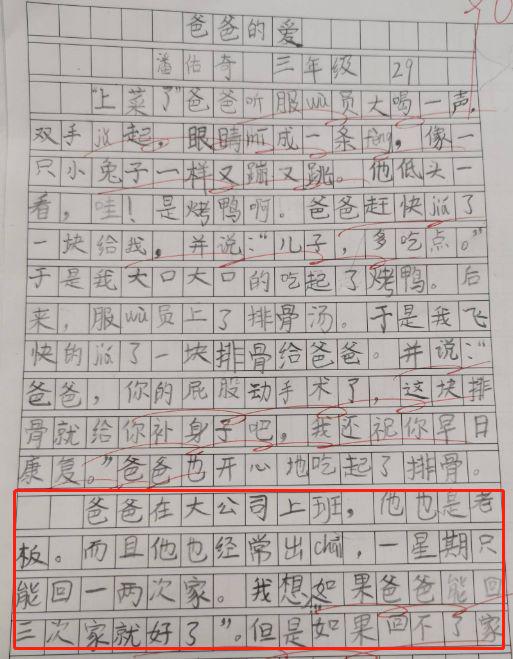 爸爸的爱
潘佑奇 三年级 29
“上菜了”爸爸听服wù员大喝一声,
双手jǔ起,眼睛mī成一条fèng,像一
只小兔子一样又蹦又跳。他低头一
看,哇!是烤鸭啊。爸爸赶快jiā了
一块给我,并说:“儿子,多吃点。”
于是我大口大口的吃起了烤鸭。后
来,服wù员上了排骨汤。于是我飞
快的jiā了一块排骨给爸爸。并说:“
爸爸,你的屁股动手术了,这块排
骨就给你补身子吧,我还祝你早日
康复。”爸爸也开心地吃起了排骨。
爸爸在大公司上班,他也是老
板。而且他也经常出chāi,一星期只
能回一两次家。我想“如果爸爸能回
三次家就好了”。但是如果回不了家